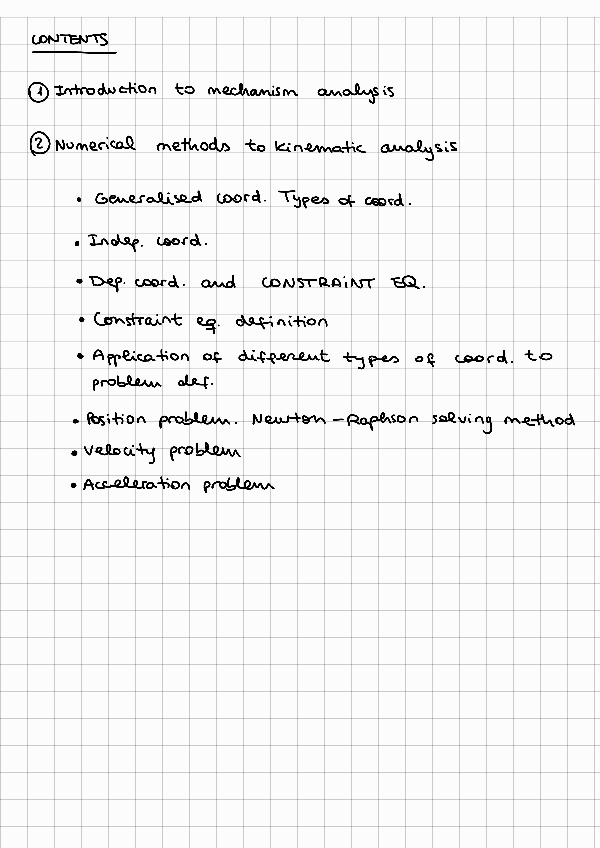 CONTENTS
① Introduction to mechanism analysis
② Numerical methods to kinematic analysis
• Generalised coord. Types of coord.
• Indep. coord.
• Dep. coord. and CONSTRAINT EQ.
• Constraint eq. definition
• Application of different types of coord. to
problem def.
• Position problem. Newton-Raphson solving method
• Velocity problem
• Acceleration problem